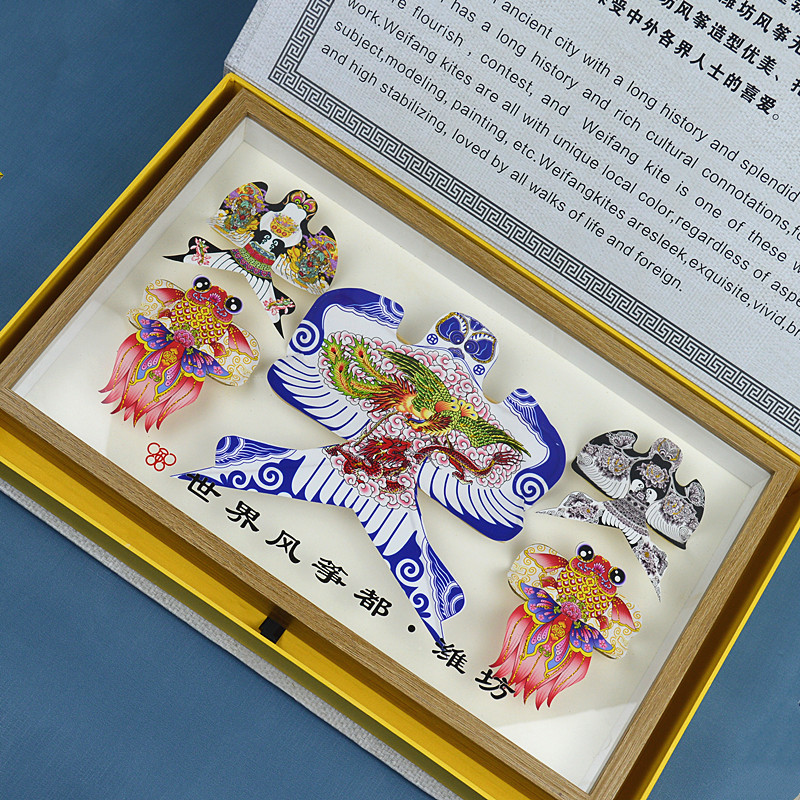 坊风筝
坊风筝造型优美、
受中外各界人士的喜爱。
ancient city with a long history and splendid
has a long history and rich cultural connotations,
re flourish , contest, and Weifang kite is one of these
work.Weifang kites are all with unique local color,regardless of
subject,modeling, painting, etc.Weifangkites aresleek,exquisite,vivid,
and high stabilizing, loved by all walks of life and foreign.
世界风筝都·潍坊